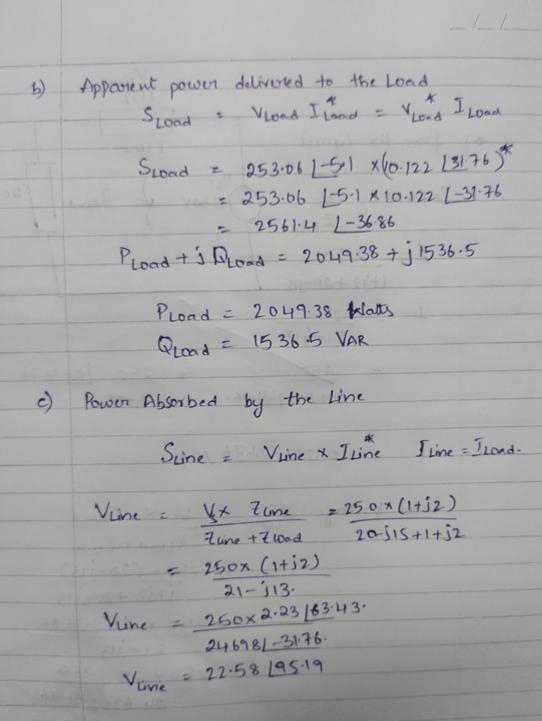 _/_/_
b) Apparent power delivered to the Load
S Load = V Load I Load* = V Load* I Load
S Load = 253.06 ∠-5.1 × (10.122 ∠31.76)*
= 253.06 ∠-5.1 × 10.122 ∠-31.76
= 2561.4 ∠-36.86
P Load + j Q Load = 2049.38 + j 1536.5
P Load = 2049.38 Watts
Q Load = 1536.5 VAR
c) Power Absorbed by the Line
S Line = V Line × I Line* I Line = I Load.
V Line = Vs × Z Line / Z Line + Z Load = 250 × (1+j2) / 20-j15+1+j2
= 250 × (1+j2) / 21-j13.
V Line = 250 × 2.23 ∠63.43. / 24.698 ∠-31.76.
V Line = 22.58 ∠95.19